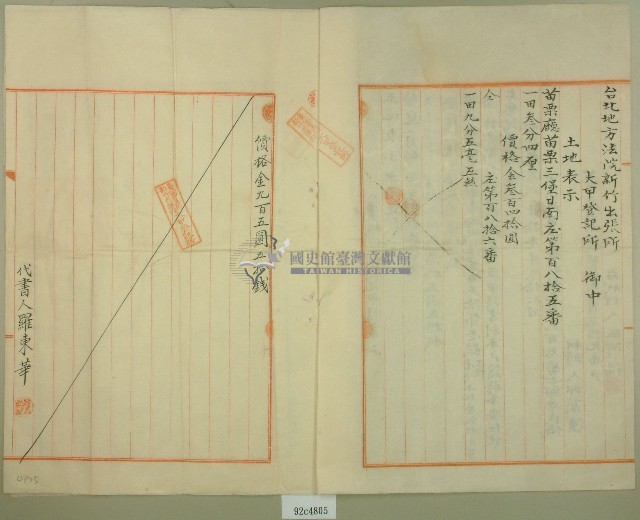 台北地方法院新竹出張所
大甲登記所 御中
土地表示
苗栗廳苗栗三堡日南庄第百八拾五番
一田叁分四厘
價格金叁百四拾圓
仝 庄第百八拾六番
一田九分五毫五絲
價格金九百五圓五拾錢
代書人羅東華
國史館臺灣文獻館
TAIWAN HISTORICA
92c4805